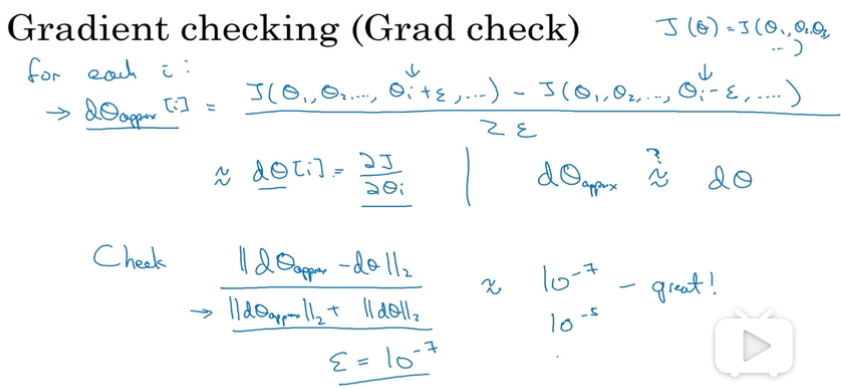 Gradient checking (Grad check)
J(θ) = J(θ₁, θ₂, θ₃, ...)
for each i:
→ dθapprox[i] = (J(θ₁, θ₂, ..., θᵢ+ε, ...) - J(θ₁, θ₂, ..., θᵢ-ε, ...)) / 2ε
≈ dθ[i] = ∂J/∂θᵢ | dθapprox ≈? dθ
Check ‖dθapprox - dθ‖₂ / (‖dθapprox‖₂ + ‖dθ‖₂) ≈ 10⁻⁷ - great!
→ 10⁻⁵
ε = 10⁻⁷